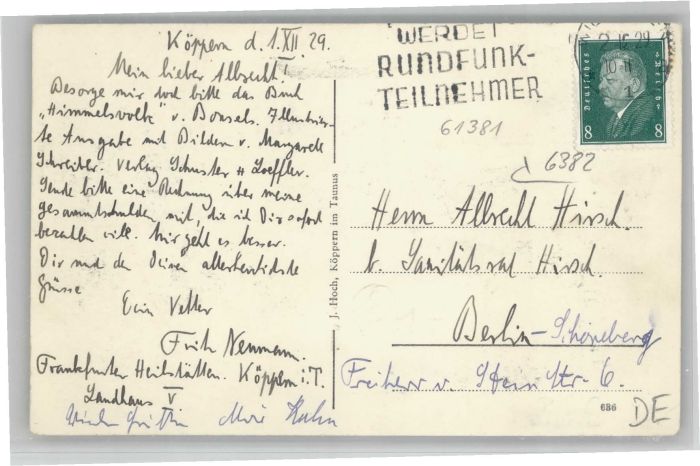 Köppern d. 1.XII 29.
Mein lieber Albrecht!
Besorge mir doch bitte das Buch
„Himmelsvolk" v. Bonsels. Illustrier-
te Ausgabe mit Bildern v. Margarete
Schreiber. Verlag Schuster & Loeffler.
Sende bitte eine Rechnung über meine
gesammtschulden mit, die ich Dir sofort
bezahlen will. Mir geht es besser.
Dir und den Deinen allerherzlichste
Grüsse
Dein Vetter
Fritz Neumann.
Frankfurter Heilstätten. Köppern i.T.
Landhaus V
J. Hoch, Köppern im Taunus
WERDET
RUNDFUNK-
TEILNEHMER
Deutsches Reich
8 8
61381
6382
Herrn Albrecht Hirsch.
b. Sanitätsrat Hirsch.
Berlin-Schöneberg
Freiherr v. Stein Str. 6.
686
DE